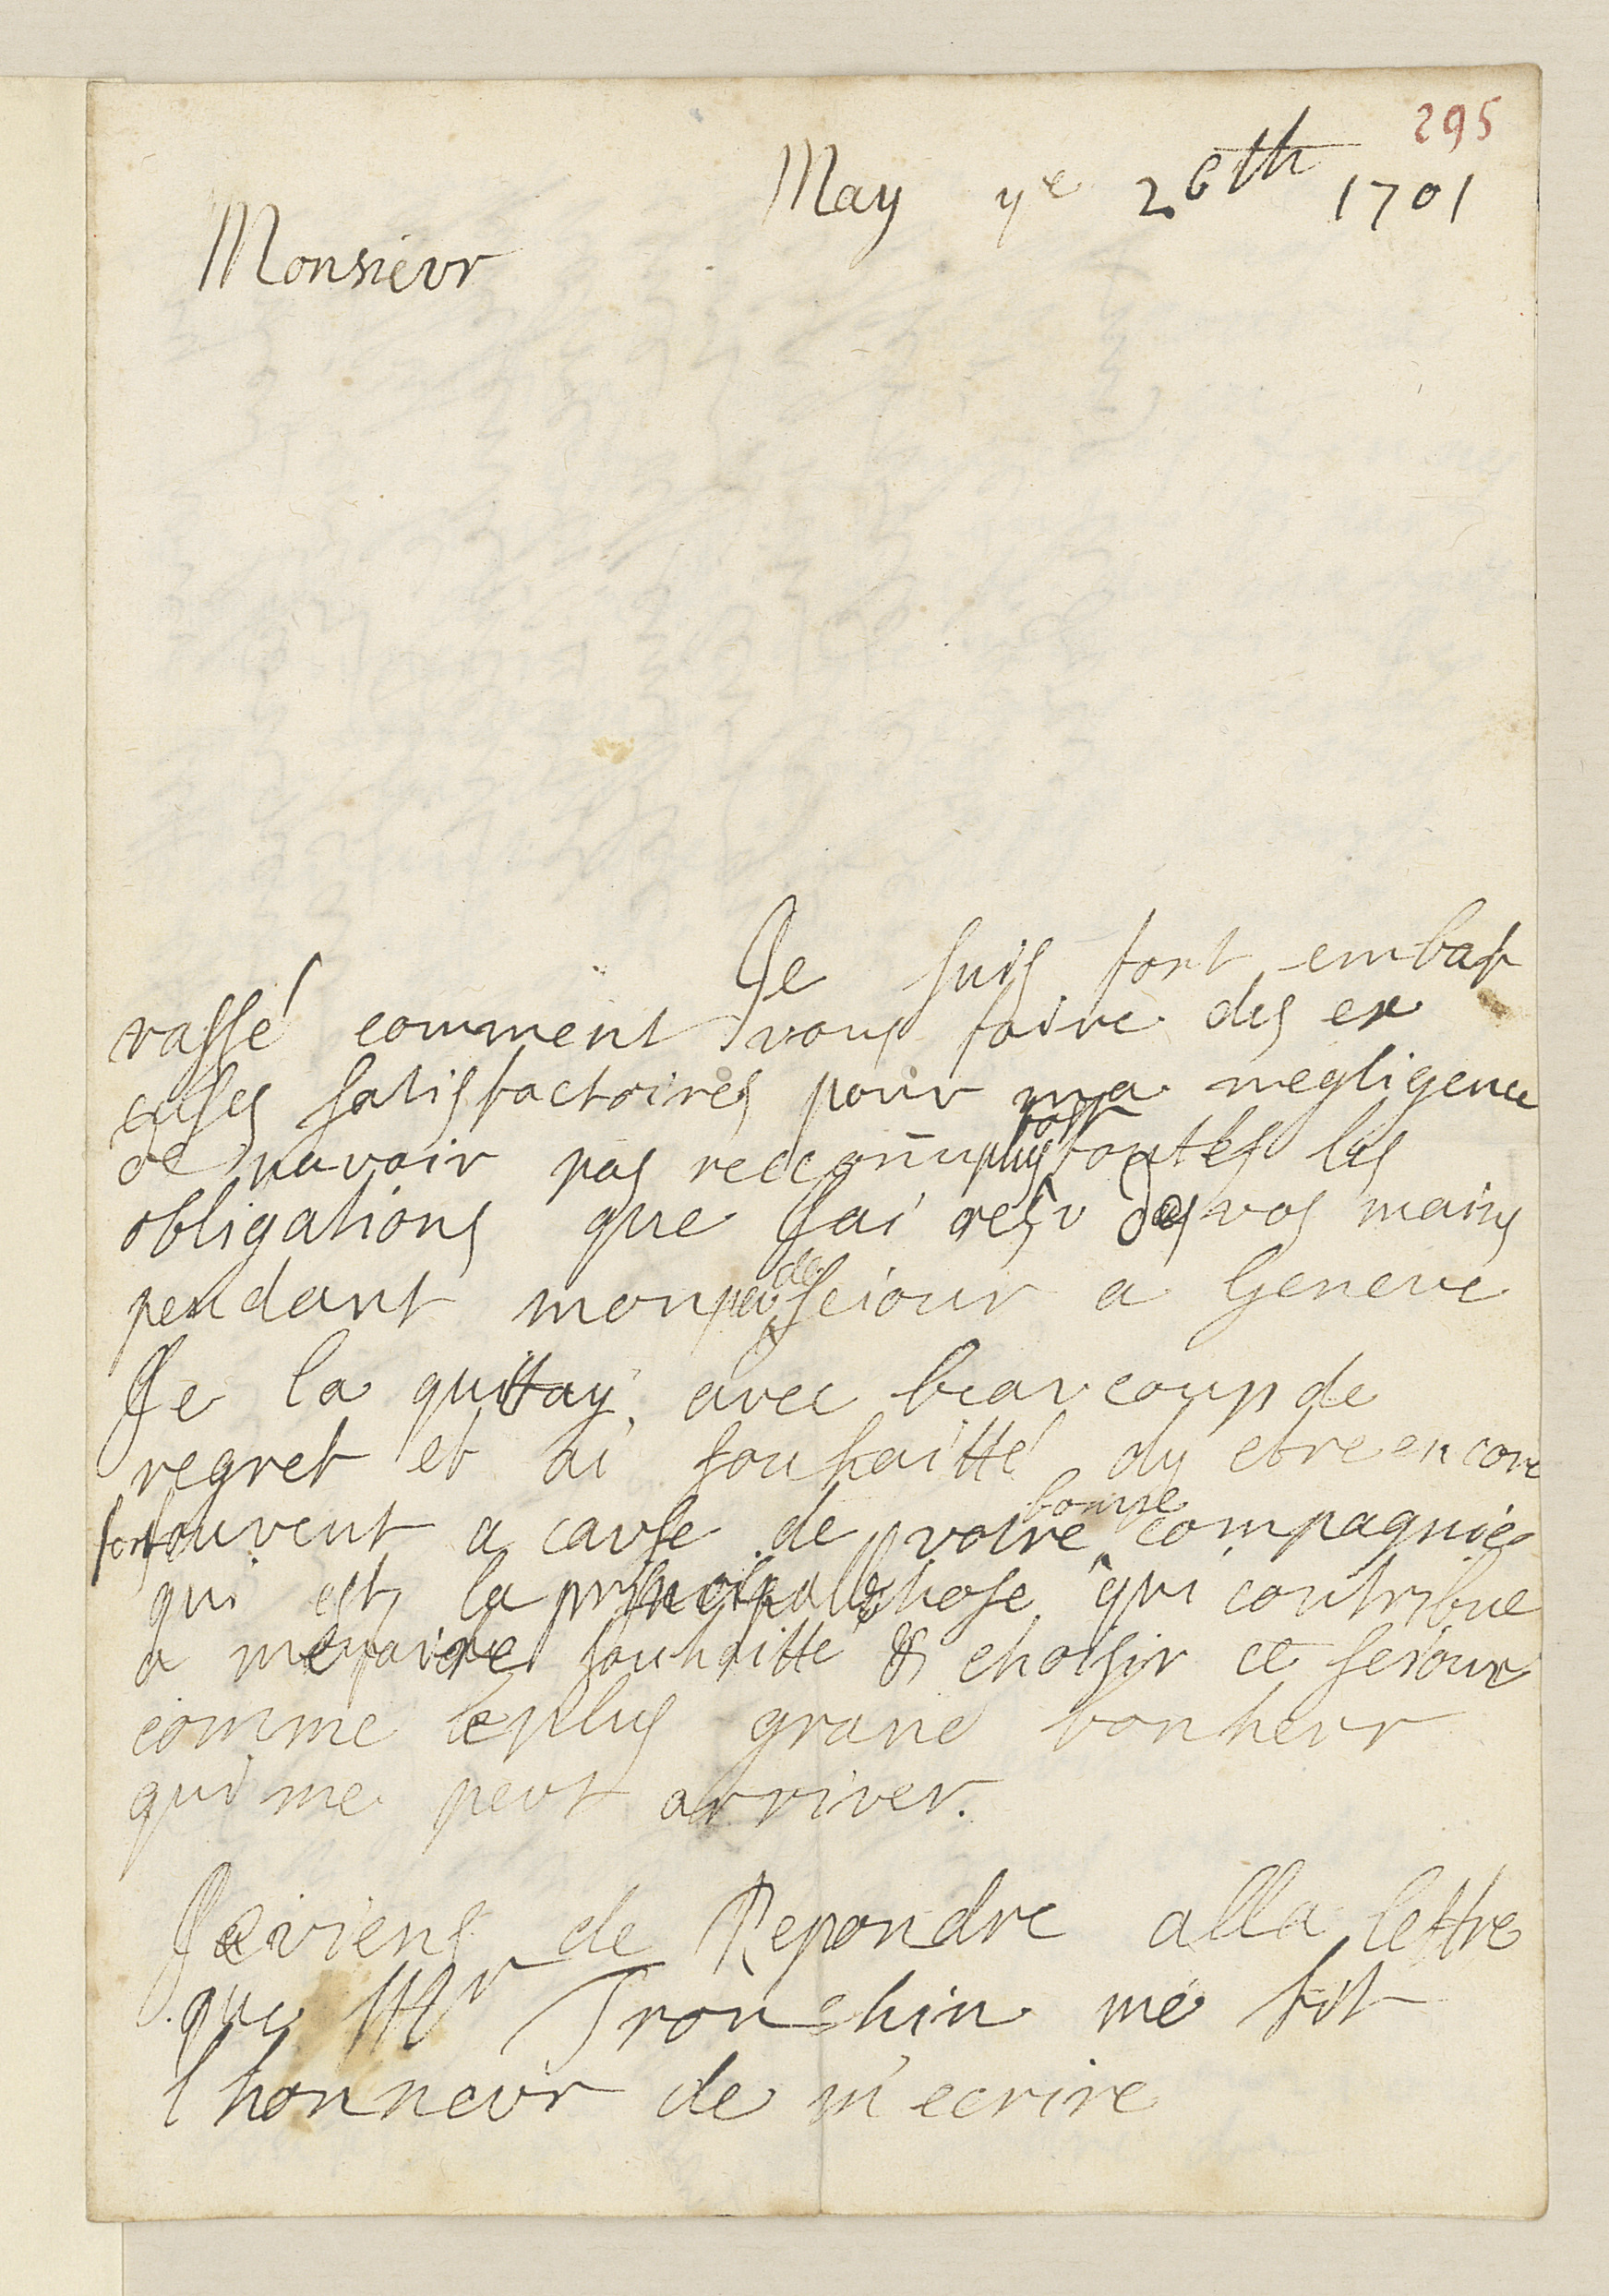 295
May ye 26th 1701
Monsieur
Je suis fort embar
rassé comment vous faire des ex
cuses satisfactoires pour ma negligence
de navoir pas reconnu plus tost toutes les
obligations que Jai resu de vos mains
pendant mon peu de seiour a Geneve
Je la quittay avec beaucoup de
regret et ai souhaitté dy etre encore
fort souvent a cause de votre bonne compagnie
qui est la principalle chose qui contribue
a me faire souhaitte & choisir ce seiour
comme le plus grand bonheur
qui me peut arriver.
Je viens de Repondre alla lettre
que Mr Tronchin me fit
l honneur de m'ecrire